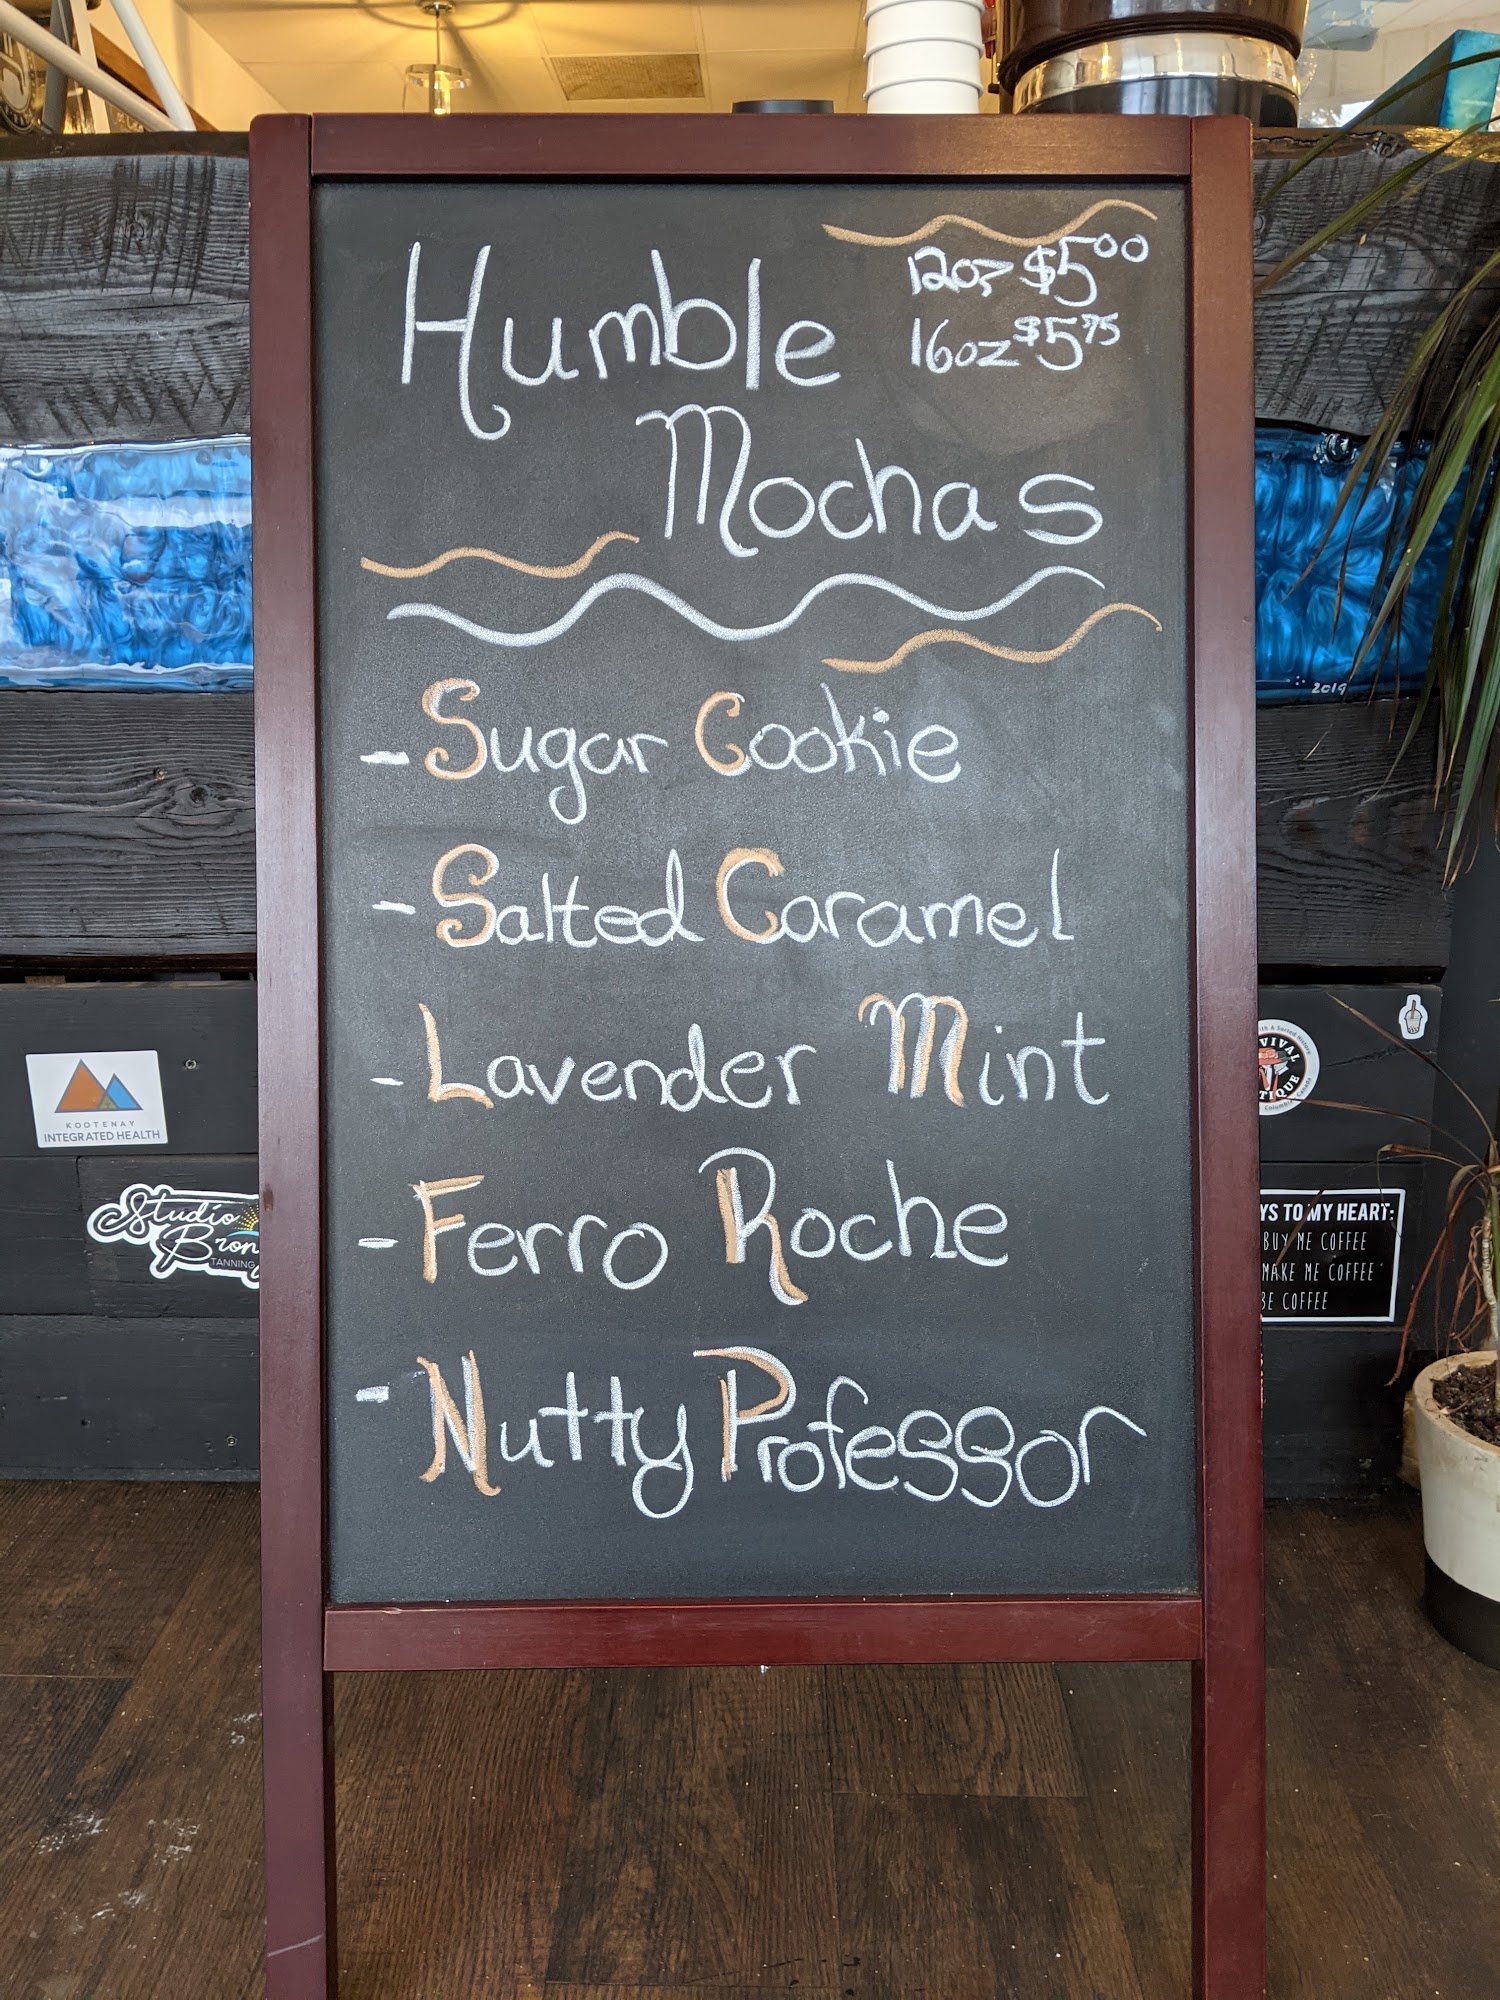 Humble
Mochas
12oz $5.00
16oz $5.75
- Sugar Cookie
- Salted Caramel
- Lavender Mint
- Ferro Roche
- Nutty Professor
KOOTENAY
INTEGRATED HEALTH
Studio
Bron
TANNING
2019
VIVAL
TIQUE
YS TO MY HEART:
BUY ME COFFEE
MAKE ME COFFEE
BE COFFEE